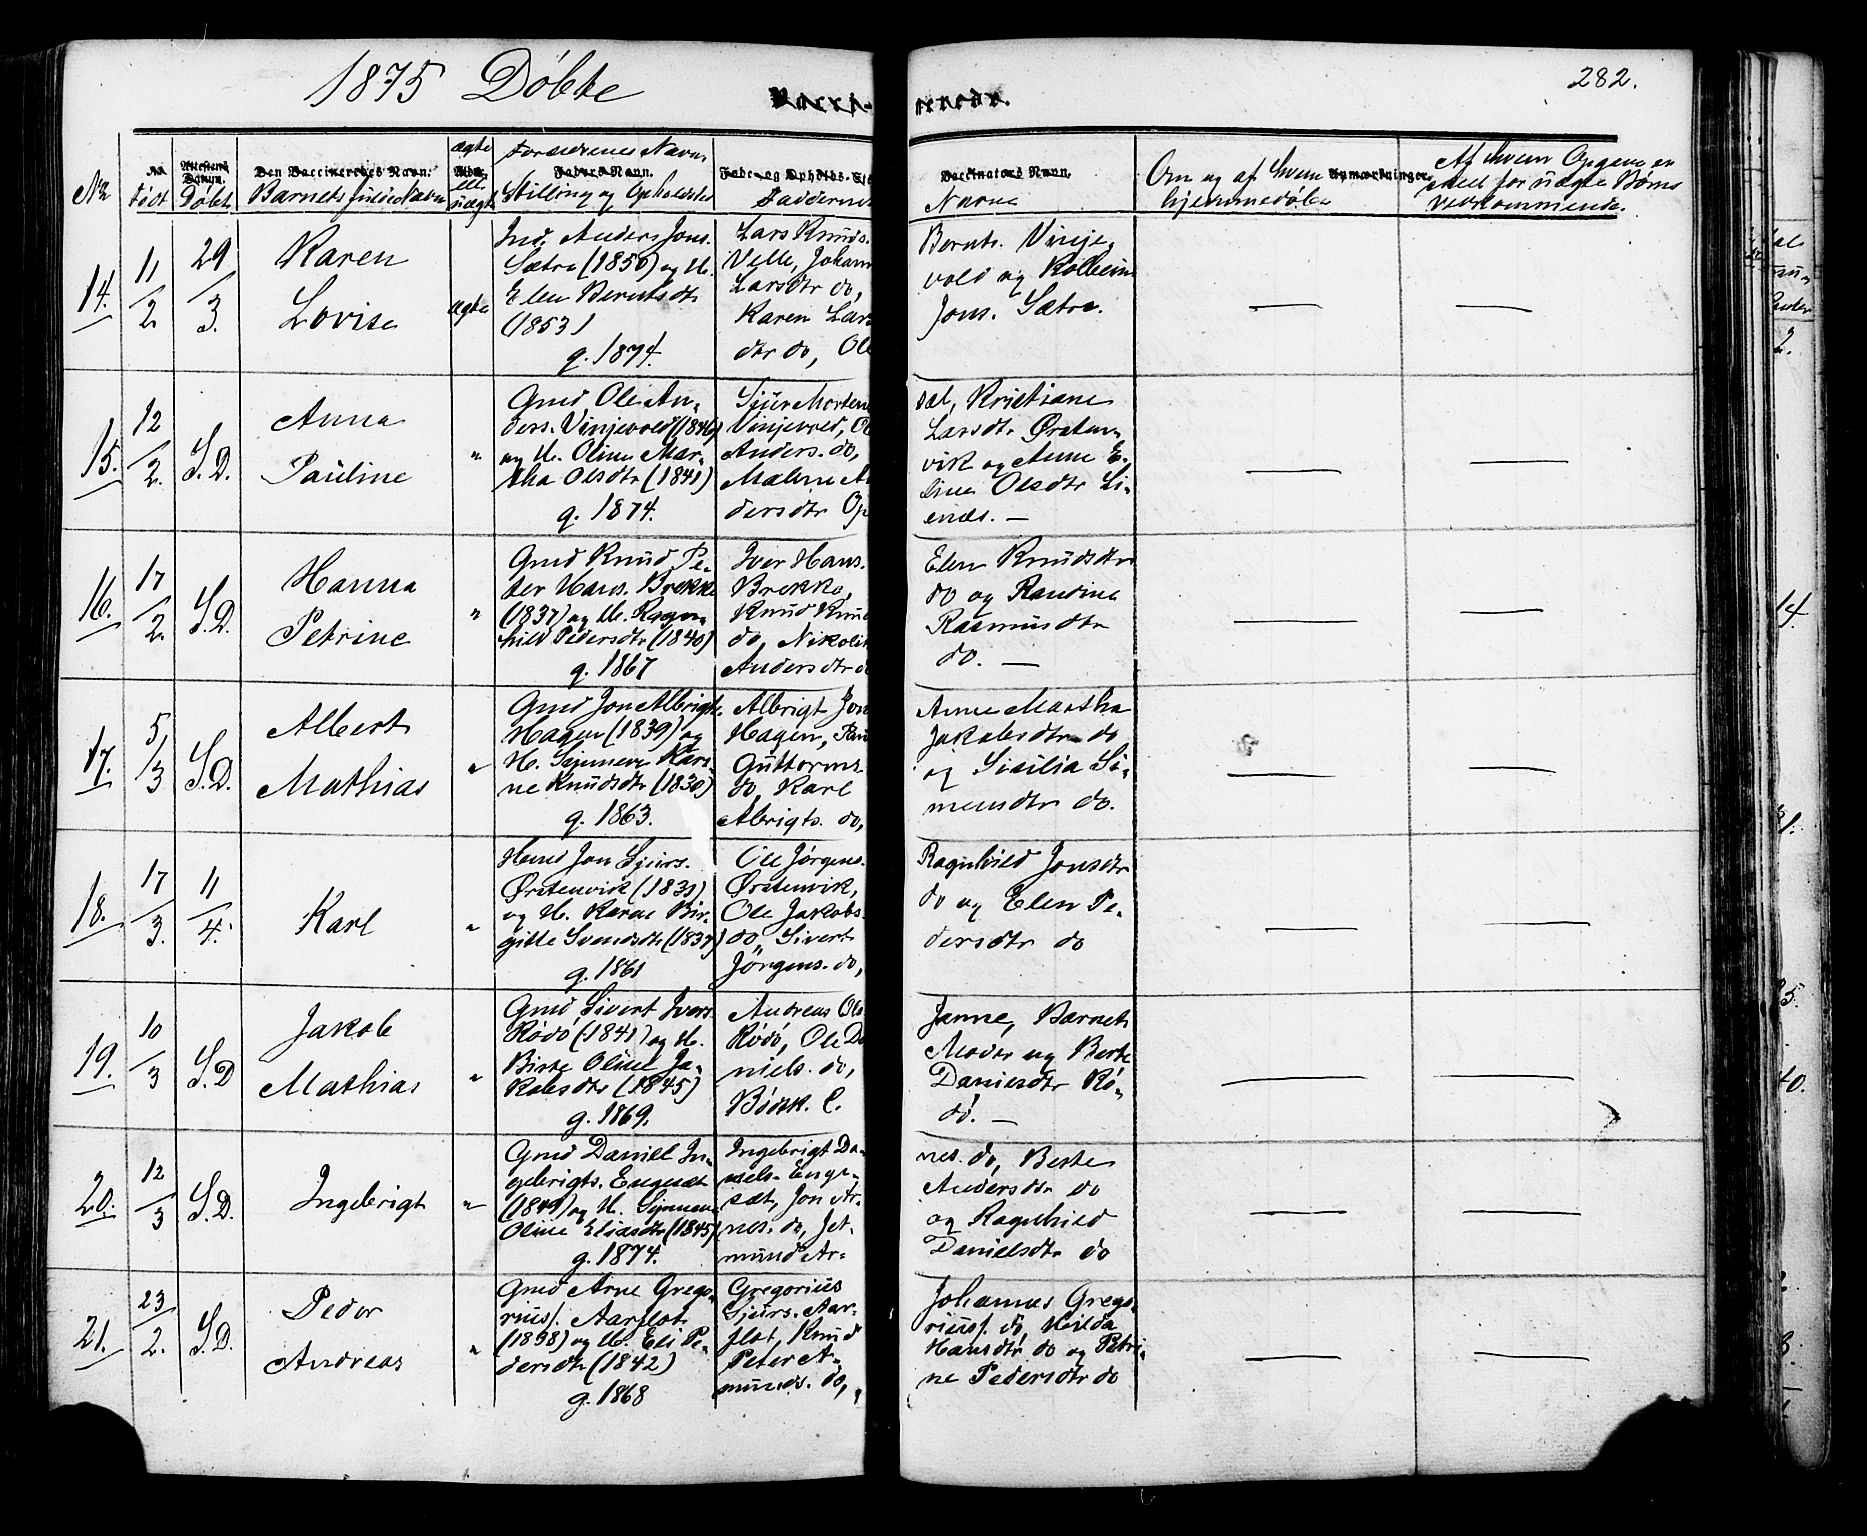 1875 Døbte
282.
Vacci- nerede.
No
Født
Attestens Datum.
Døbt
Den Vaccineredes Navn.
Barnets fulde Navn
ægte ell. uægte
Forældrenes Navn,
Faders Navn.
Stilling og Opholdssted
Faddernes
Vaccinators Navn.
Navne
Om og af hvem
Anmærkninger
hjemmedøbt
Af hvem Opgave er
skeet for uægte Børns
Vedkommende.
14.
11/2
29/3.
Karen
Lovise
ægte
Ind. Anders Jons.
Sætre (1850) og H.
Elen Berntsdtr
(1853)
g. 1874.
Lars Knuds.
Velle, Johann
Larsdtr do,
Karen Lars
dtr do, Ole
Bernts. Vinje-
vold og Kolbein
Jons. Sætre.
15.
12/2.
S.D.
Anna
Pauline
"
Gmd Ole An-
ders. Vinjevold (1846)
og H. Oline Mar-
tha Olsdtr (1841)
g. 1874.
Sjur Morten
Vinjevold, Ol
Anders. do,
Malene An
dersdtr Op
sal, Kristiane
Larsdtr Ørsten-
vik og Anne E-
line Olsdtr Li-
enæs. —
16.
17/2.
S.D.
Hanna
Petrine
"
Gmd Knud Pe-
der Hans. Brekke
(1837) og H. Ragn-
hild Pedersdtr (1840)
g. 1867
Iver Hans.
Brekke,
Knud Knud
do, Nikoline
Andersdtr do
Elen Knudsdtr
do og Randine
Rasmusdtr
do. —
17.
5/3
S.D.
Albert
Mathias
"
Gmd Jon Albrigts.
Hagen (1839) og
H. Synneve Kars.
ne Knudsdtr (1830)
g. 1863.
Albrigt Jon
Hagen,
Guttorms
do, Karl
Albrigts. do,
Anne Martha
Jakobsdtr do
og Sicilia Si-
mensdtr do.
18.
17/3.
11/4.
Karl
"
Husmd Jon Sjurs.
Ørstenvik (1831)
og H. Karne Bir-
gitte Svendsdtr (1837)
g. 1861
Ole Jørgens.
Ørstenvik,
Ole Jakobs.
do, Sivert
Jörgens. do,
Ragnhild Jonsdtr
do og Elen Pe-
dersdtr do
19.
10/3
S.D
Jakob
Mathias
"
Gmd Sivert Ivers
Rødø (1841) og H.
Birte Oline Ja-
kobsdtr (1845)
g. 1869.
Andreas Ols
Rødö, Ole Da
niels. do,
Janne, Barnets
Moder og Berte
Danielsdtr Rö-
dö. —
20.
12/3
S.D.
Ingebrigt
"
Gmd Daniel In-
gebrigts. Engesæt
(1849) og H. Synneve
Oline Eliasdtr (1845)
g. 1874.
Ingebrigt Da-
niels. Enge-
sæt, Jon Ar-
nes. do, Jet-
mund Ar-
nes. do, Berte
Andersdtr do
og Ragnhild
Danielsdtr do
21.
23/2.
S.D.
Peder
Andreas
"
Gmd Arne Grego-
rius. Aarflot
(1838) og H. Eli Pe-
dersdtr (1842)
g. 1868
Gregorius
Sjurs. Aar-
flot, Knud
Peter A-
munds. do,
Johannes Grego-
rius. do, Hilda
Hansdtr do og Petri-
ne Pedersdtr do